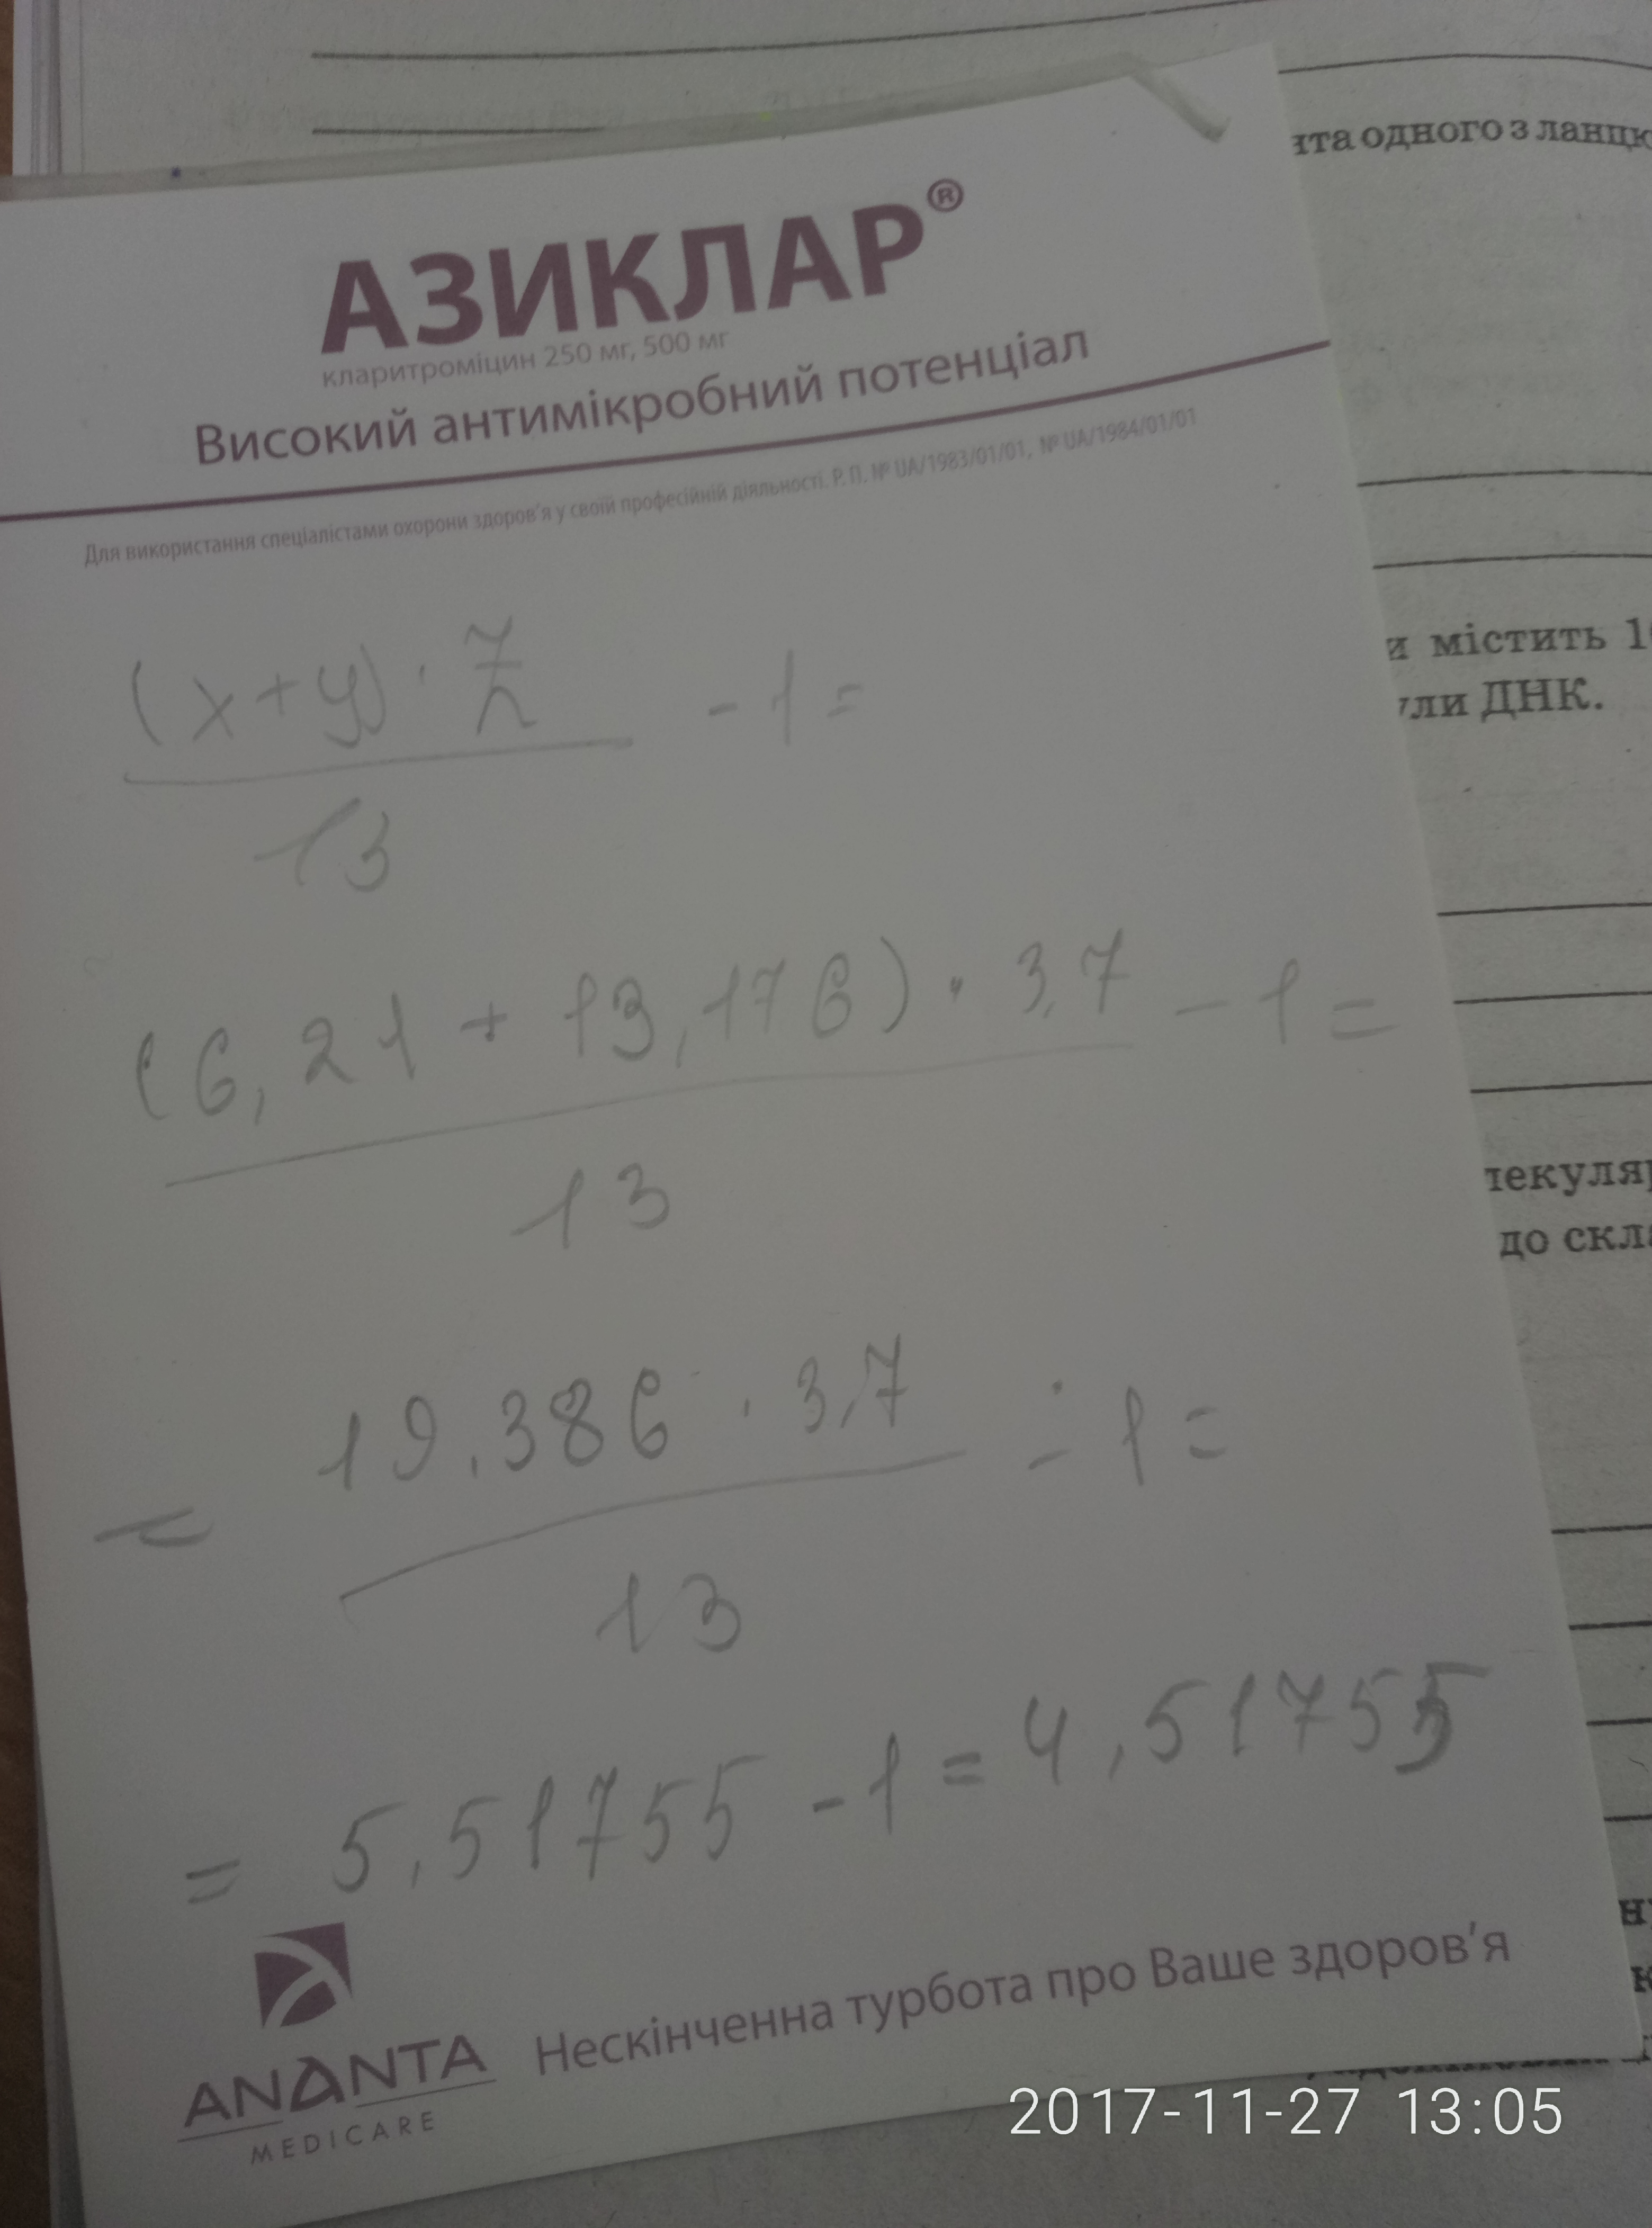 нта одного з ланцю
АЗИКЛАР®
кларитроміцин 250 мг, 500 мг
Високий антимікробний потенціал
Для використання спеціалістами охорони здоров'я у своїй професійній діяльності. Р. П. № UA/1983/01/01, № UA/1984/01/01
и містить 1
ули ДНК.
(x+y) · z
- 1 =
13
(6,21 + 13,176) · 3,7 - 1 =
13
лекуляр
до скла
= 19,386 · 3,7 - 1 =
13
= 5,51755 - 1 = 4,51755
ANANTA
MEDICARE
Нескінченна турбота про Ваше здоров'я
2017-11-27 13:05